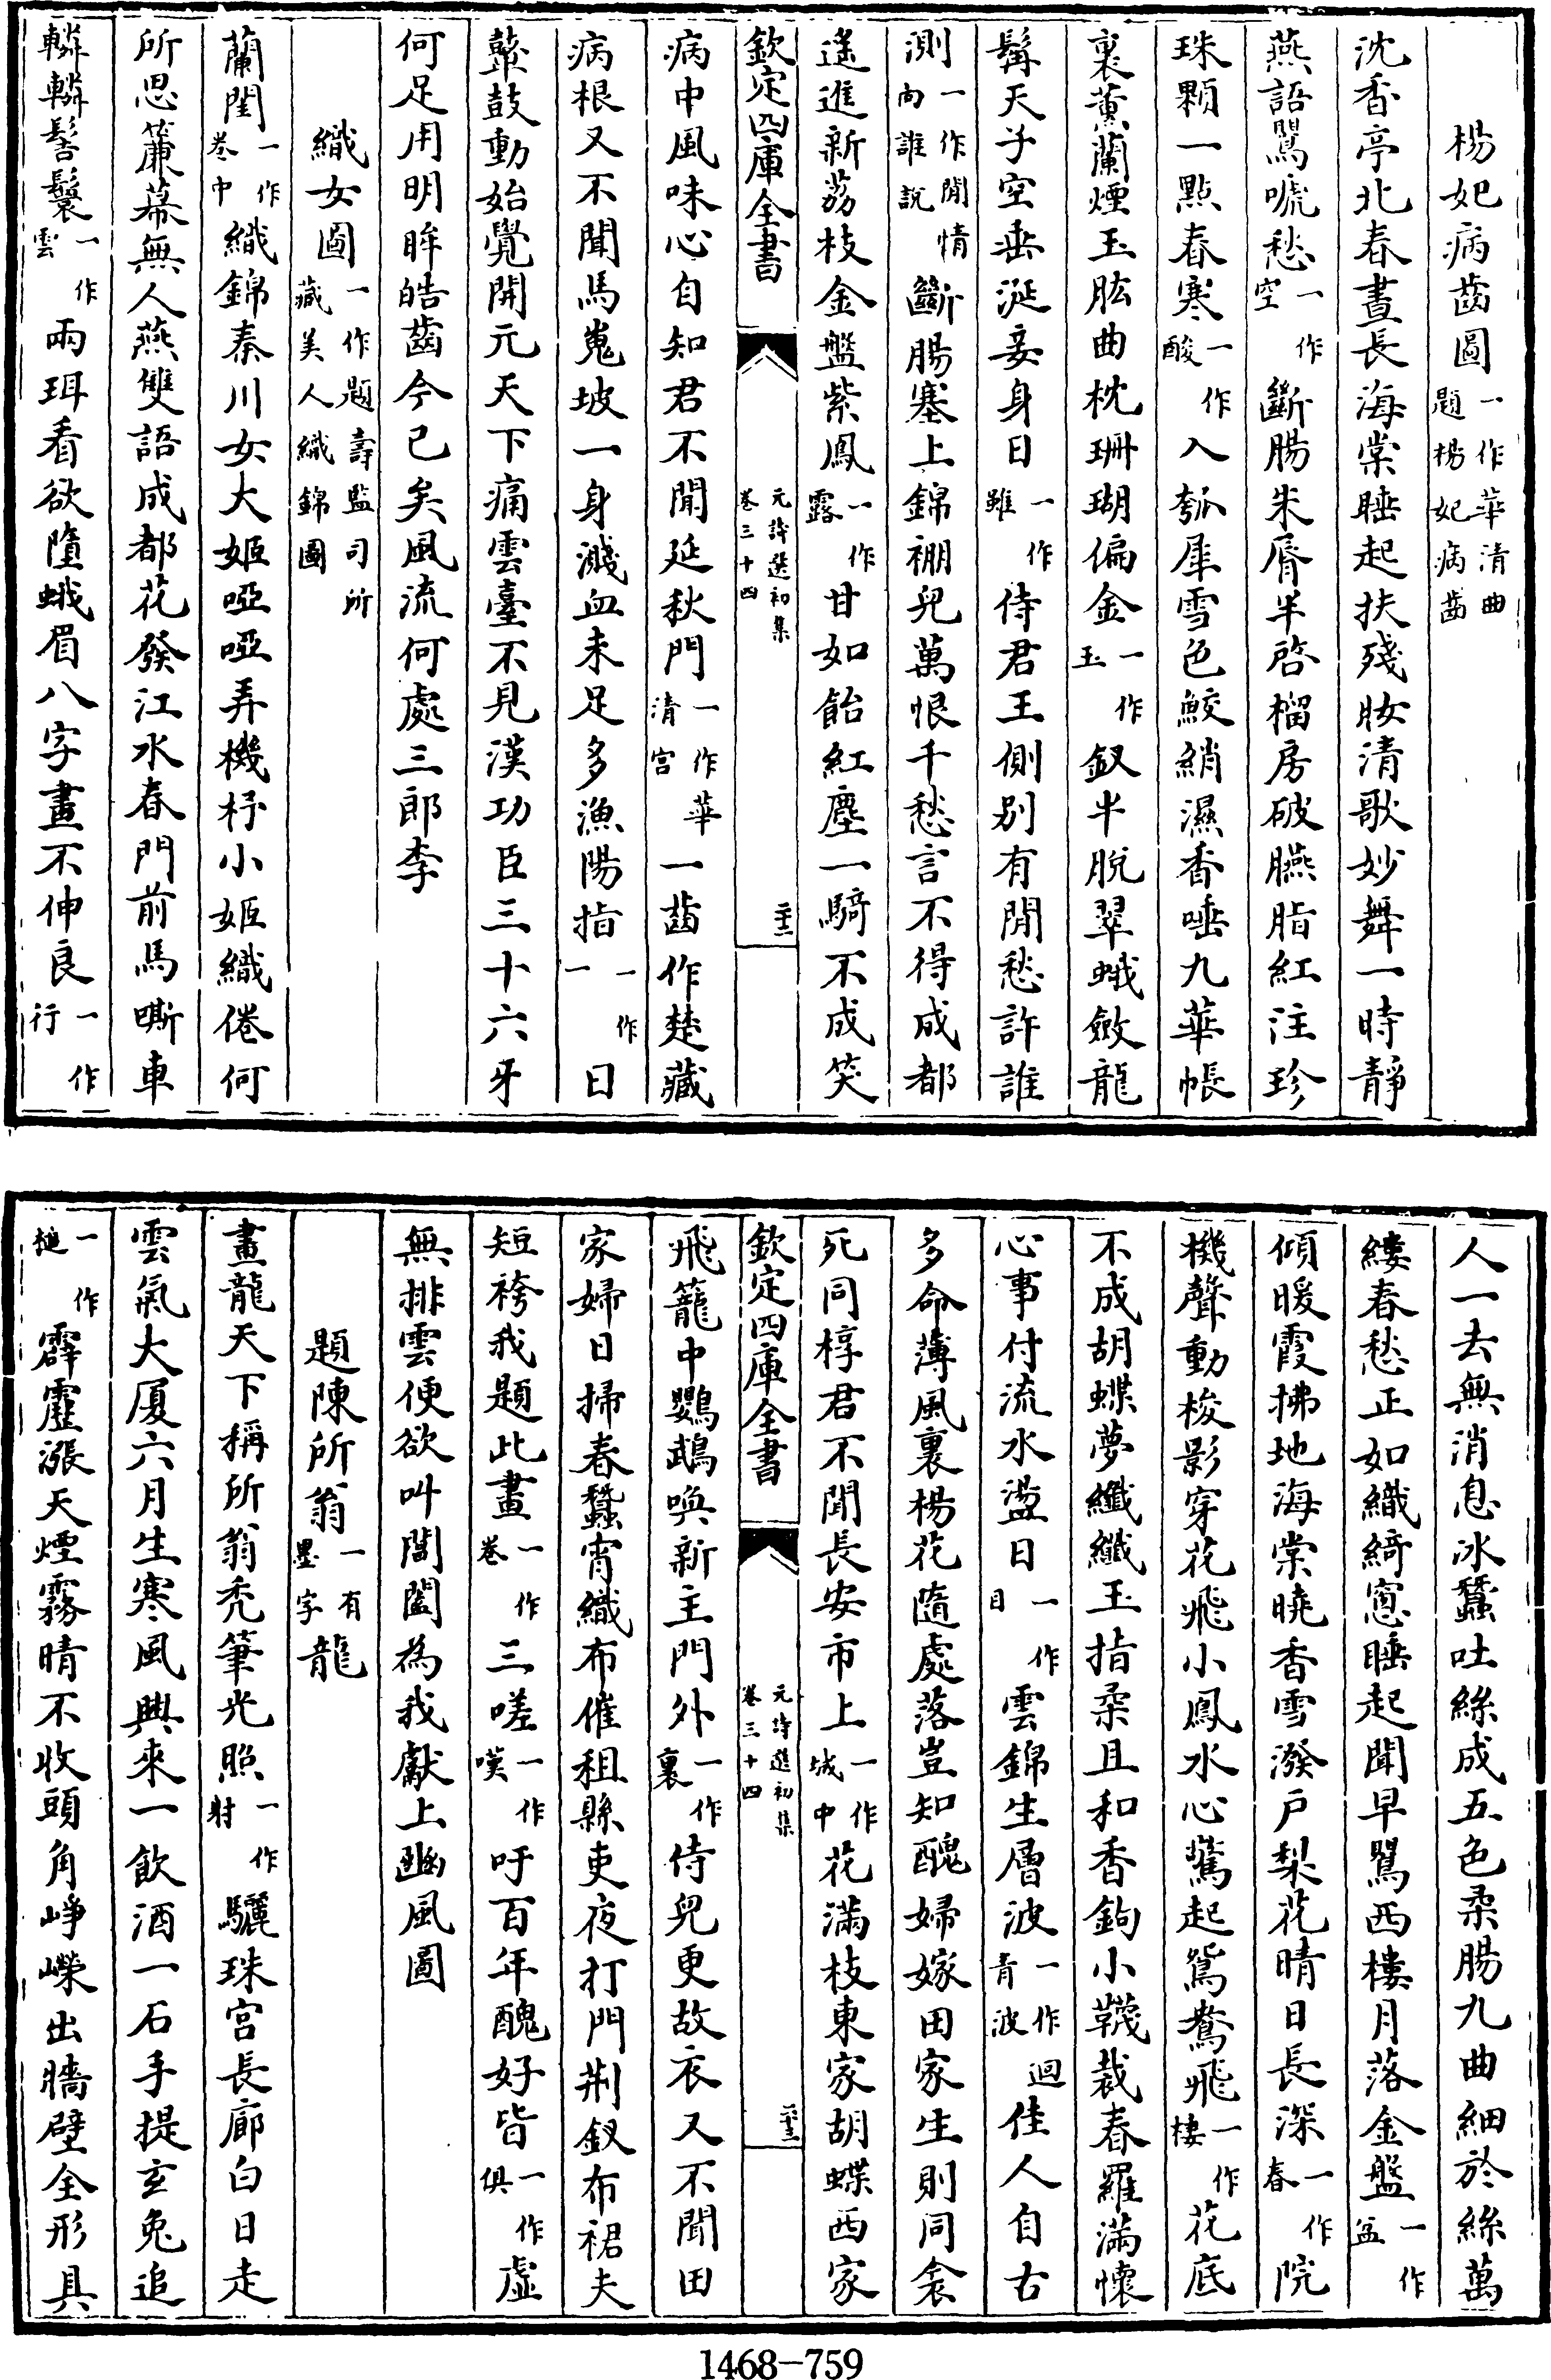 楊妃病齒圖一作華清曲題楊妃病齒
沈香亭北春晝長海棠睡起扶殘妝清歌妙舞一時靜
燕語鶯啼愁一作空斷腸朱脣半啓榴房破臙脂紅注珍
珠顆一點春寒一作酸入瓠犀雪色鮫綃濕香唾九華帳
裏薰蘭煙玉肱曲枕珊瑚偏金一作玉釵半脫翠蛾斂龍
髯天子空垂涎妾身日一作雖侍君王側别有閒愁許誰
測一作閒情向誰說斷腸塞上錦棚兒萬恨千愁言不得成都
遙進新荔枝金盤紫鳳一作露甘如飴紅塵一騎不成笑
欽定四庫全書
元詩選初集
卷三十四
病中風味心自知君不聞延秋門一作華清宫一齒作楚藏
病根又不聞馬嵬坡一身濺血未足多漁陽指一作一日
鼙鼓動始覺開元天下痛雲臺不見漢功臣三十六牙
何足用明眸皓齒今已矣風流何處三郎李
織女圖一作題壽監司所藏美人織錦圖
蘭閨一作巻中織錦秦川女大姬啞啞弄機杼小姬織倦何
所思簾幕無人燕雙語成都花發江水春門前馬嘶車
轔轔髻鬟一作雲兩珥看欲墮蛾眉八字畫不伸良一作行
人一去無消息冰蠶吐絲成五色柔腸九曲細於絲萬
縷春愁正如織綺窻睡起聞早鶯西樓月落金盤一作盆
傾暖霞拂地海棠曉香雪潑戸梨花晴日長深一作春院
機聲動梭影穿花飛小鳳水心驚起鴛鴦飛一作棲花底
不成胡蝶夢纖纖玉指柔且和香鉤小韈裁春羅滿懷
心事付流水盪日一作目雲錦生層波一作迴青波佳人自古
多命薄風裏楊花隨處落豈知醜婦嫁田家生則同衾
死同椁君不聞長安市上一作城中花滿枝東家胡蝶西家
欽定四庫全書
元詩選初集
卷三十四
飛籠中鸚鵡喚新主門外一作裏侍兒更故衣又不聞田
家婦日掃春蠶宵織布催租縣吏夜打門荆釵布裙夫
短袴我題此畫一作卷三嗟一作嘆吁百年醜好皆一作俱虛
無排雲便欲叫閶闔為我獻上豳風圖
題陳所翁一有墨字龍
畫龍天下稱所翁秃筆光照一作射驪珠宫長廊白日走
雲氣大厦六月生寒風興來一飲酒一石手提玄兔追
一作槌霹靂漲天煙霧晴不收頭角崢嶸出牆壁全形具
1468-759